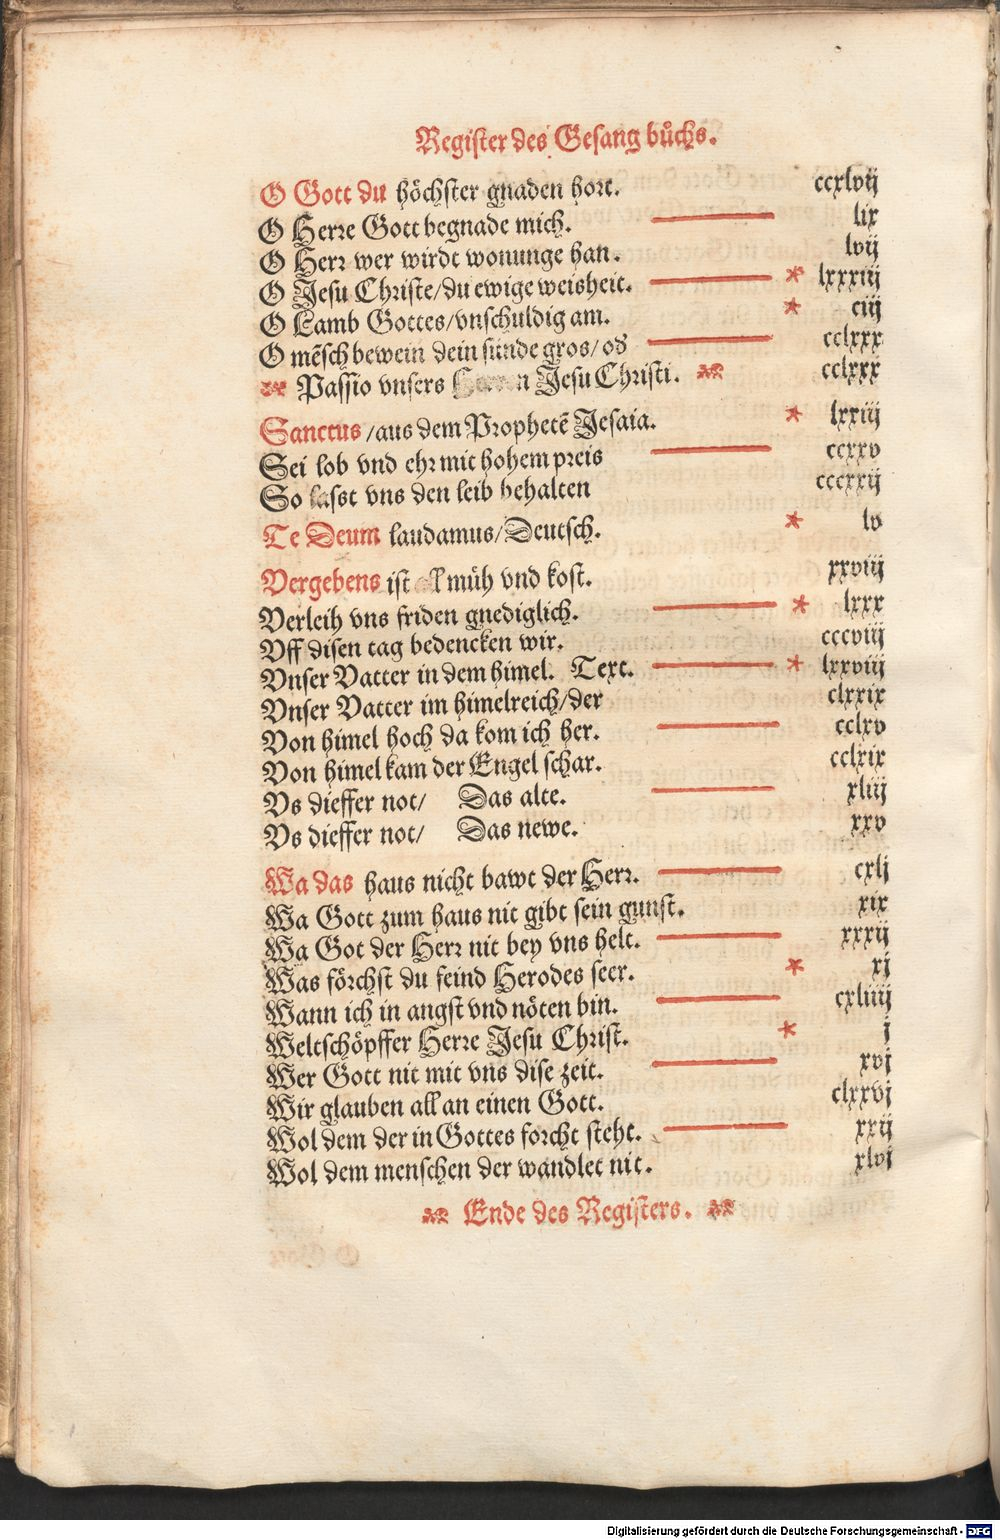 Register des Gesang bůchs.
O Gott du höchster gnaden hort. ccxlvij
O Herre Gott begnade mich. lix
O Herr wer wirdt wonunge han. lvij
O Jesu Christe/du ewige weisheit. * lxxxiij
O Lamb Gottes/vnschuldig am. * ciij
O mẽsch bewein dein sünde gros/ cclxxx
Passio vnsers Herren Jesu Christi. cclxxx
Sanctus/aus dem Prophetẽ Jesaia. * lxxiij
Sei lob vnd ehr mit hohem preis ccxxv
So lasst vns den leib behalten cccxxij
Te Deum laudamus/Deutsch. * lv
Vergebens ist all müh vnd kost. xxviij
Verleih vns friden gnediglich. * lxxx
Vff disen tag bedencken wir. cccviij
Vnser Vatter in dem himel. Text. * lxxviij
Vnser Vatter im himelreich/der clxxix
Von himel hoch da kom ich her. cclxv
Von himel kam der Engel schar. cclxix
Vs dieffer not/ Das alte. xliij
Vs dieffer not/ Das newe. xxv
Wa das haus nicht bawt der Herr. cxlj
Wa Gott zum haus nit gibt sein gunst. xix
Wa Got der Herr nit bey vns helt. xxxij
Was förchst du feind Herodes seer. * xj
Wann ich in angst vnd nöten bin. cxliiij
Weltschöpffer Herre Jesu Christ. * j
Wer Gott nit mit vns dise zeit. xvj
Wir glauben all an einen Gott. clxxvj
Wol dem der in Gottes forcht steht. xxij
Wol dem menschen der wandlet nit. xlvj
Ende des Registers.
Digitalisierung gefördert durch die Deutsche Forschungsgemeinschaft - DFG